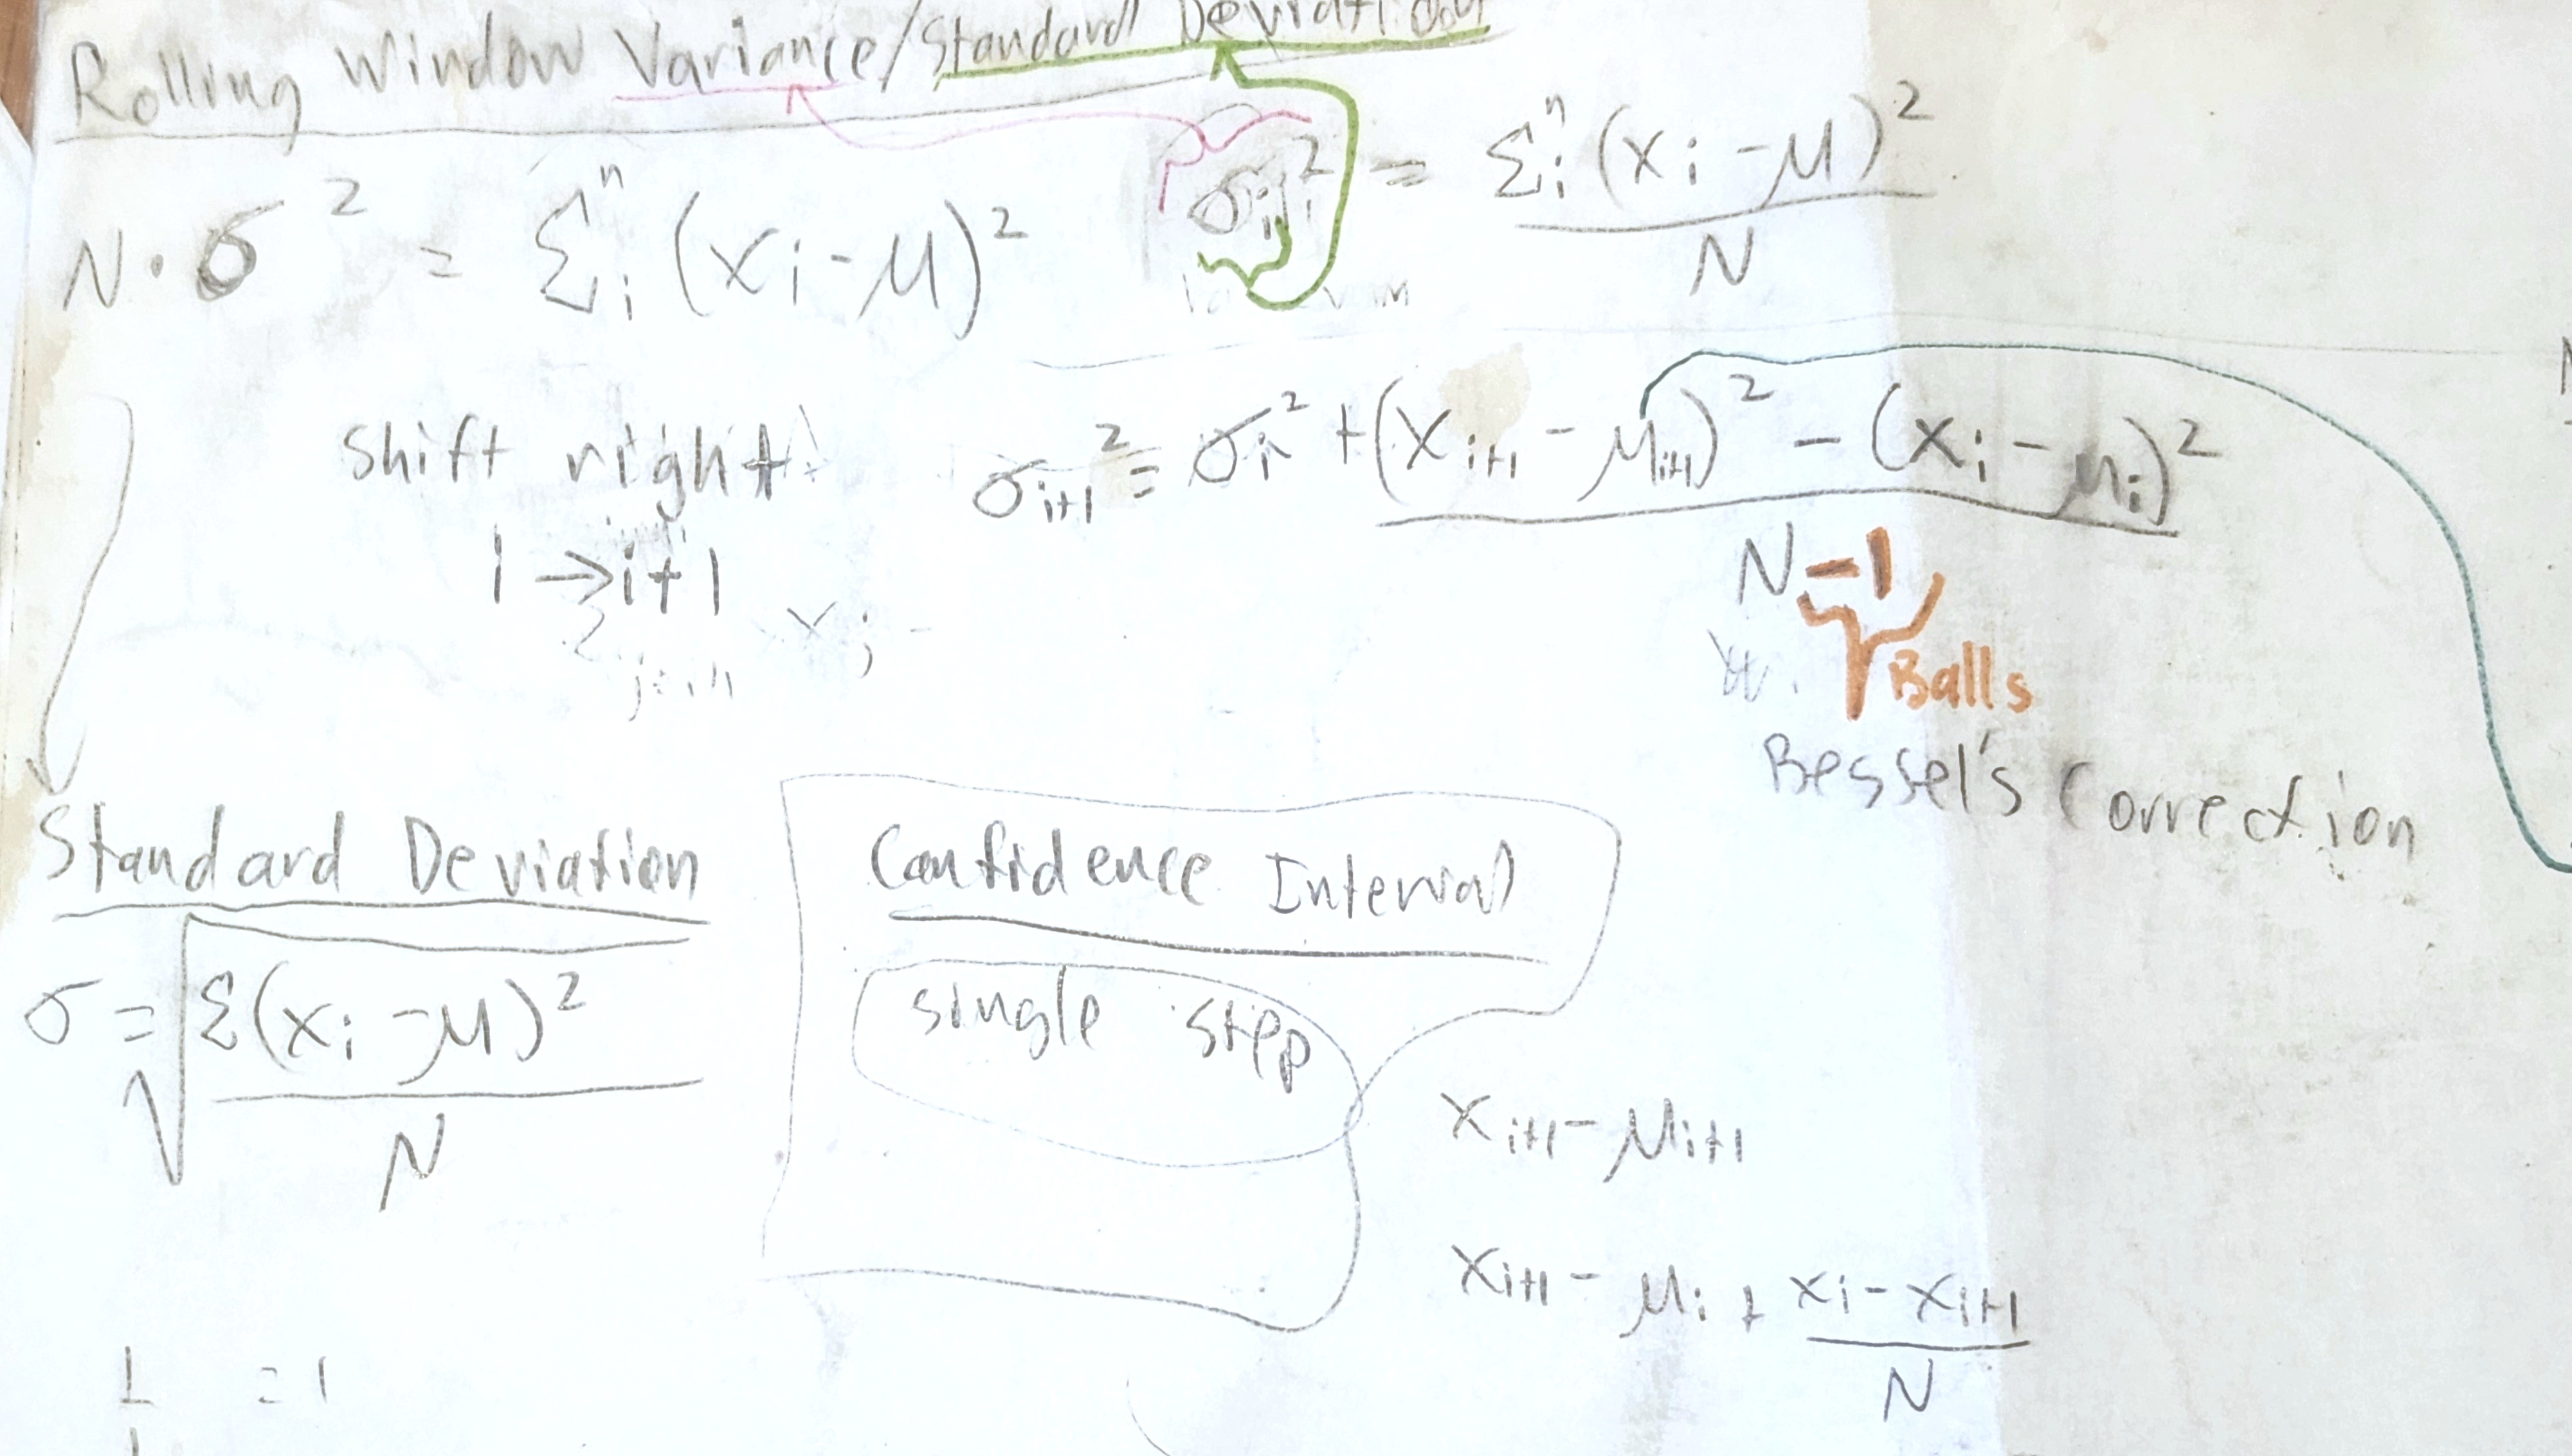 Rolling Window Variance/Standard Deviation
N · σ² = Σᵢⁿ (xᵢ - μ)²
σᵢ² = Σᵢⁿ (xᵢ - μ)² / N
shift right
i → i+1
xⱼ -
σᵢ₊₁² = σᵢ² + (xᵢ₊₁ - μᵢ₊₁)² - (xᵢ - μᵢ)² / N - 1
Balls
Bessel's Correction
Standard Deviation
σ = √Σ(xᵢ - μ)² / N
Confidence Interval
single step
xᵢ₊₁ - μᵢ₊₁
xᵢ₊₁ - μᵢ + xᵢ - xᵢ₊₁ / N
= 1